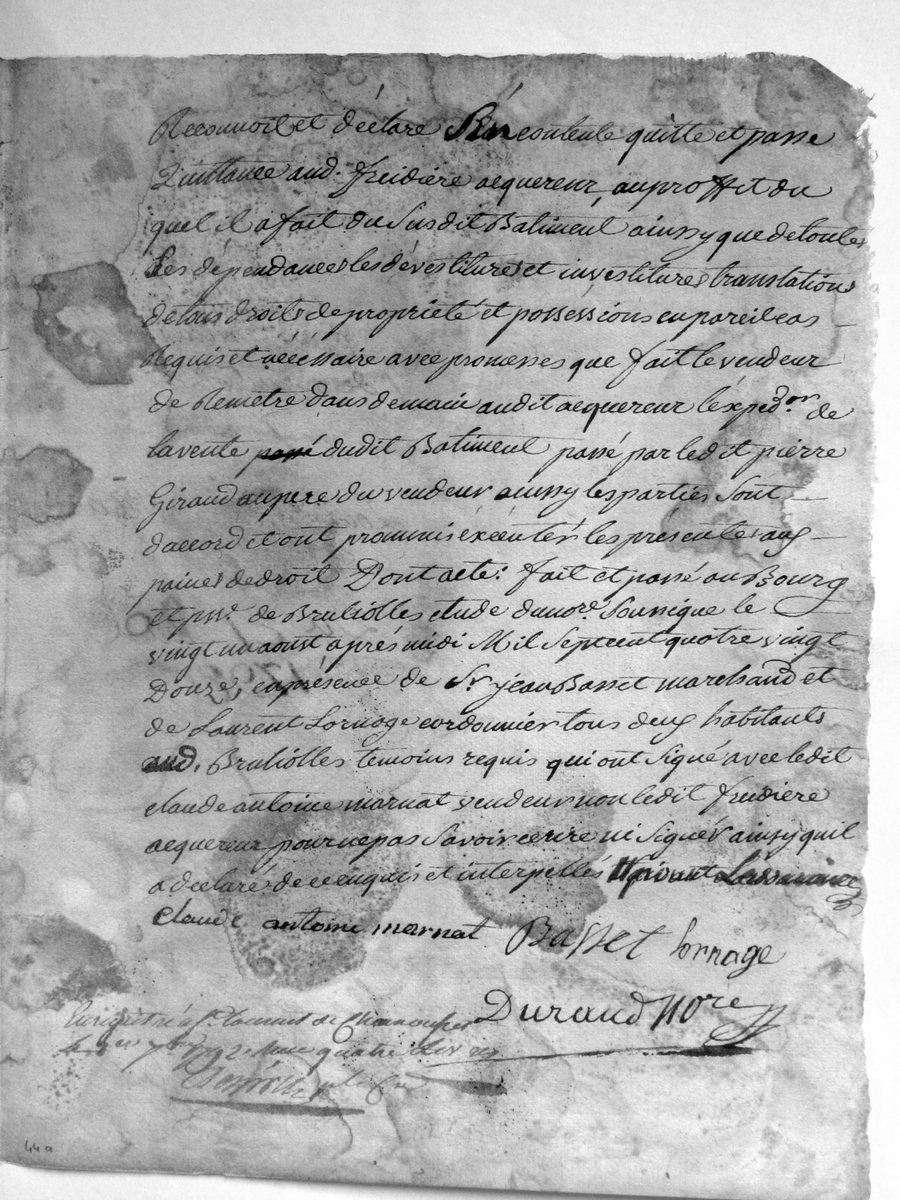 Reconnoit et déclare s'en contente quitte et passe
Quittance aud. freidiere acquereur, au proffit du
quel il a fait du susdit Batiment ainssy que de toutes
ses dépendances les dévestitures et investitures translations
de tous droits de propriété et possessions en pareil cas
Requis et nécéssaire avec promesses que fait le vendeur
de Remetre dans demain audit acquereur l'éxped.on de
la vente passé dudit Batiment passé par ledit pierre
Giraud au pere du vendeur ainssy les parties sont
d'accord et ont proumis éxécuter les présentes aux
paines de droit Dont acte: fait et passé au Bourg
et p.sse de Brulliolles etude du no.re soussigne le
vingt un aoust aprés midi Mil Septcent quatre vingt
Douze, en présence de S.r jean Basset marchand et
de Laurent Lornage cordonnier tous deux habitants
aud. Brulliolles temoins requis qui ont signé avec ledit
claude antoine marnat vendeur non ledit freidiere
acquereur pour ne pas savoir ecrire ni signér ainsy quil
a declaré de ce enquis et interpellés
claude antoine marnat Basset lornage
Durand Nore
Enrigistré à St Laurent de Chamousset
1792 quatre livres
44 a